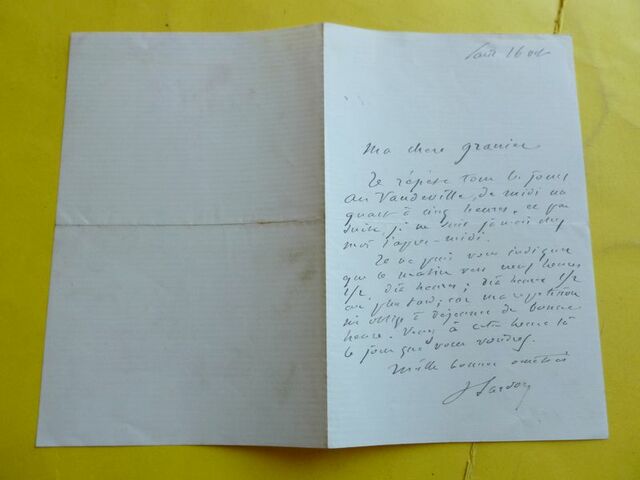 16 oct
Ma chere Granier
Je répète tous les jours
au Vaudeville, de midi un
quart à cinq heures, et par
suite, je ne suis jamais chez
moi l'après-midi.
Je ne puis vous indiquer
que le matin vers neuf heures
1/2, dix heures ; dix heures 1/2
au plus tard, car ma répétition
m'oblige à déjeuner de bonne
heure. Venez à cette heure là
le jour que vous voudrez.
Mille bonnes amitiés
V Sardou